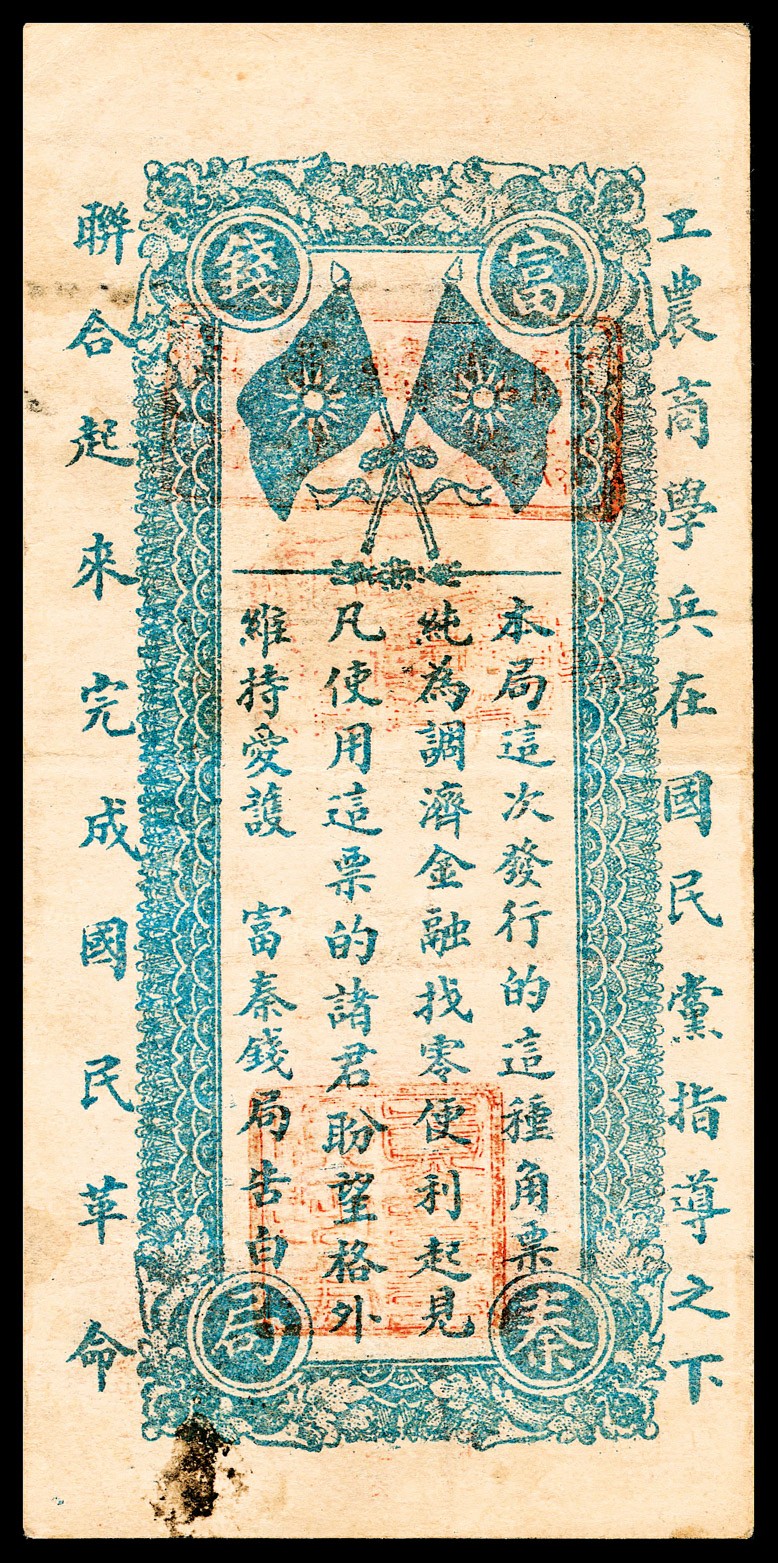 工農商學兵在國民黨指導之下
富秦錢局
本局這次發行的這種角票
純為調濟金融找零便利起見
凡使用這票的諸君盼望格外
維持愛護 富秦錢局告白
聯合起來完成國民革命